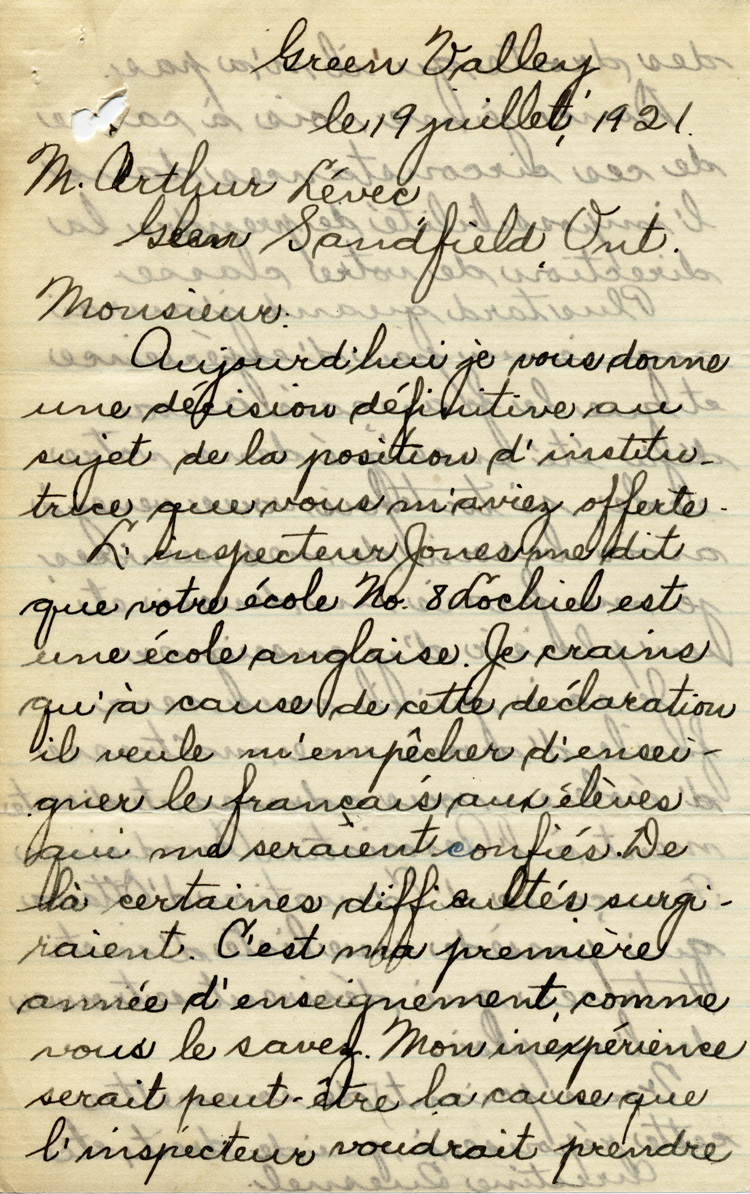 Green Valley
le 19 juillet, 1921.
M. Arthur Lévec
Glen Sandfield Ont.
Monsieur.
Aujourd'hui je vous donne
une décision définitive au
sujet de la position d'institu-
trice que vous m'aviez offerte.
L'inspecteur Jones me dit
que votre école No. 8 Lochiel est
une école anglaise. Je crains
qu'à cause de cette déclaration
il veule m'empêcher d'ensei-
gner le français aux élèves
qui me seraient confiés. De
là certaines difficultés surgi-
raient. C'est ma première
année d'enseignement, comme
vous le savez. Mon inexpérience
serait peut-être la cause que
l'inspecteur voudrait prendre